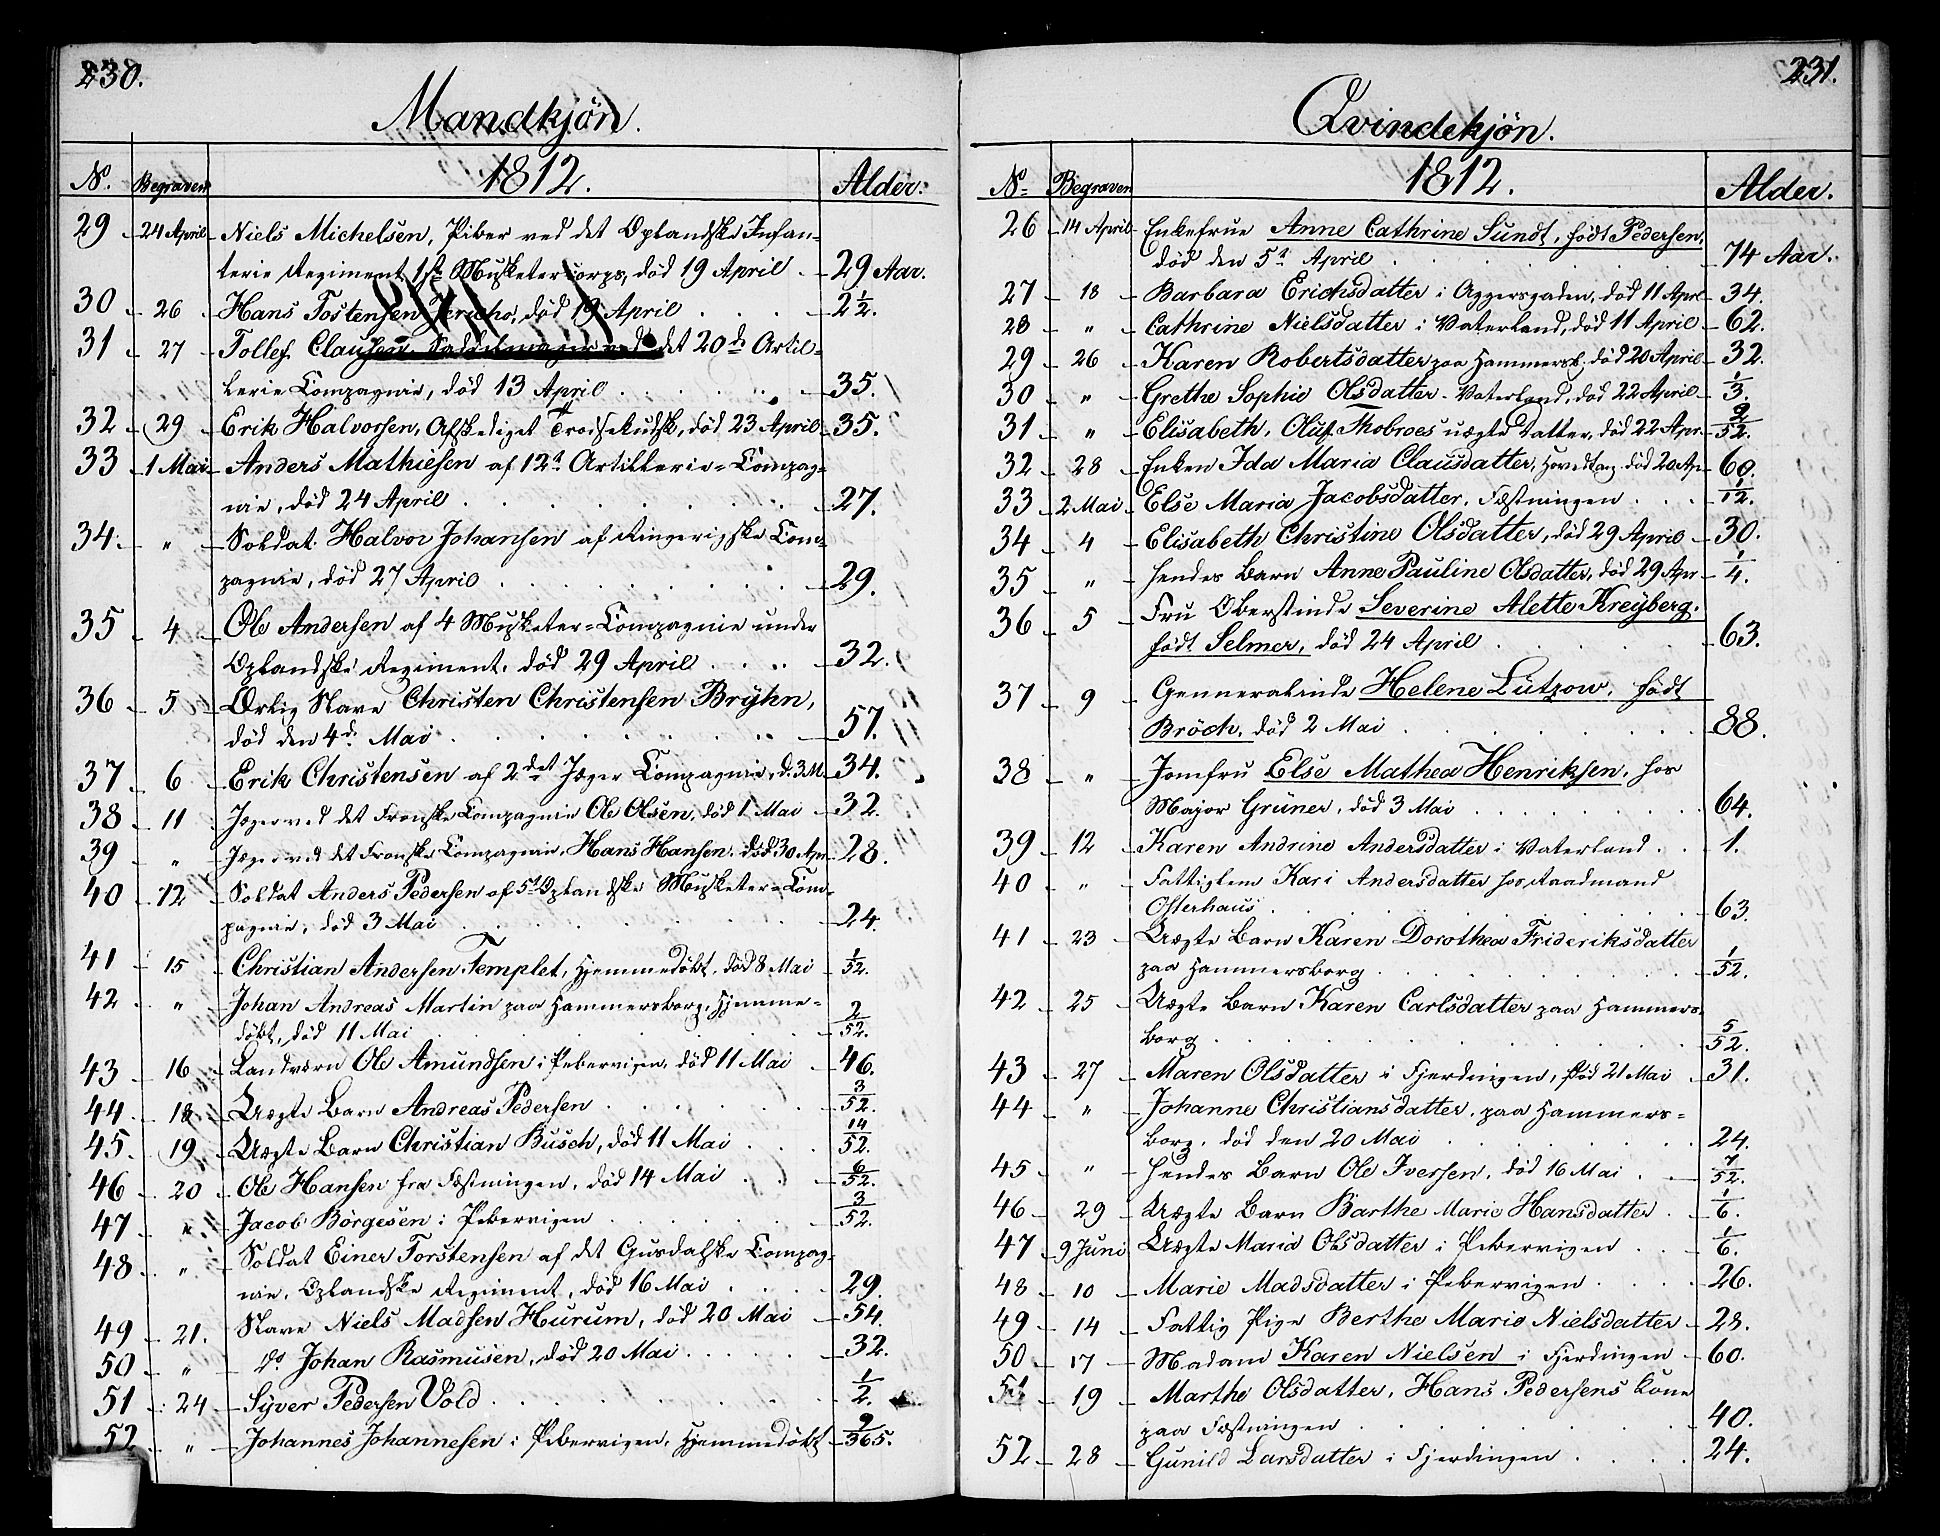 230.
Mandkjøn.
No. Begraven 1812. Alder.
29 24 April Niels Michelsen, Piber ved det Oplandske Infan-
terie Regiment 1ste Musketercorps, død 19 April . 29 Aar.
30 26 Hans Tostensen Jericho, død 19 April 2½.
31 27 Tollef Clausen Saddelmager ved det 20de Artil-
lerie Compagnie, død 13 April 35.
32 29 Erik Halvorsen, Afskediget Trodsekudsk, død 23 April 35.
33 1 Mai Anders Mathiesen af 12te Artillerie-Compag-
nie, død 24 April 27.
34. " Soldat Halvor Johansen af Ringerigske Com-
pagnie, død 27 April 29.
35 4 Ole Andersen af 4 Musketer-Compagnie under
Oplandske Regiment, død 29 April 32.
36 5 Ørlig Slave Christen Christensen Bryhn,
død den 4de Mai 57.
37 6 Erik Christensen af 2det Jæger Compagnie, d. 3 M. 34.
38 11 Jæger ved det Fronske Compagnie Ole Olsen, død 1 Mai 32.
39 " Jæger ved det Fronske Compagnie, Hans Hansen, død 30 Apr 28.
40 12 Soldat Anders Pedersen af 5te Oplandske Musketer-Com-
pagnie, død 3 Mai 24.
41 15 Christian Andersen Templet, Hjemmedøbt, død 8 Mai 1/52.
42 " Johan Andreas Martin paa Hammersborg, Hjemme-
døbt, død 11 Mai 2/52.
43 16 Landværn Ole Amundsen i Pebervigen, død 11 Mai 46.
44 18 Uægte Barn Andreas Pedersen 3/52.
45. 19 Uægte Barn Christian Busch, død 11 Mai 14/52.
46 20 Ole Hansen fra Fæstningen, død 14 Mai 6/52.
47 " Jacob Börgesen i Pebervigen 3/52.
48 " Soldat Einer Torstensen af det Gusdalske Compag-
nie, Oplandske Regiment, død 16 Mai 29.
49 21. Slave Niels Madsen Hurum, død 20 Mai 54.
50 " do Johan Rasmusen, død 20 Mai 32.
51 24 Syver Pedersen Vold 1/2.
52 " Johannes Johannesen i Pebervigen, Hjemmedøbt 9/365.
231.
Qvindekjøn.
No Begraven 1812. Alder.
26 14 April Enkefrue Anne Cathrine Sundt, født Pedersen,
død den 5te April 74 Aar.
27 18 Barbara Erichsdatter i Aggersgaden, død 11 April 34.
28 " Cathrine Nielsdatter i Vaterland, død 11 April 62.
29 26 Karen Robertsdatter paa Hammersb. død 20 April 32.
30 " Grethe Sophie Olsdatter Vaterland, død 22 April 1/3.
31 " Elisabeth, Oluf Thobroes uægte Datter, død 22 Apr. 2/52.
32 28 Enken Ida Maria Clausdatter, død 20 Ap 60.
33 2 Mai Else Maria Jacobsdatter, Fæstningen 1/12.
34 4 Elisabeth Christine Olsdatter, død 29 April 30.
35 " Hendes Barn Anne Pauline Olsdatter, død 29 Apr 1/4.
36 5 Fru Oberstinde Severine Alette Kreyberg,
født Selmer, død 24 April 63.
37 9 Genneralinde Helene Lützow, født
Bröch, død 2 Mai 88.
38 " Jomfru Else Mathea Henriksen, hos
Major Grüner, død 3 Mai 64.
39 12 Karen Andrine Andersdatter i Vaterland 1.
40 " Fattiglem Kari Andersdatter hos Raadmand
Osterhaus 63.
41 23 Uægte Barn Karen Dorothea Frideriksdatter
paa Hammersborg 1/52.
42 25 Uægte Barn Karen Carlsdatter paa Hammers-
borg 5/52.
43 27 Maren Olsdatter i Fjerdingen, død 21 Mai 31.
44 " Johanne Christiansdatter, paa Hammers-
borg, død den 20 Mai 24.
45 " Hendes Barn Ole Iversen, død 16 Mai 7/52.
46 29 Uægte Barn Barthe Marie Hansdatter 1/6.
47 9 Juni Uægte Maria Olsdatter i Pebervigen 1/6.
48 10 Marie Madsdatter i Pebervigen 26.
49 14 Fattig Pige Berthe Marie Nielsdatter 28.
50 17 Madam Karen Nielsen i Fjerdingen 60.
51 19 Marthe Olsdatter, Hans Pedersens kone
paa Fæstningen 40.
52 28 Gunild Larsdatter i Fjerdingen 24.